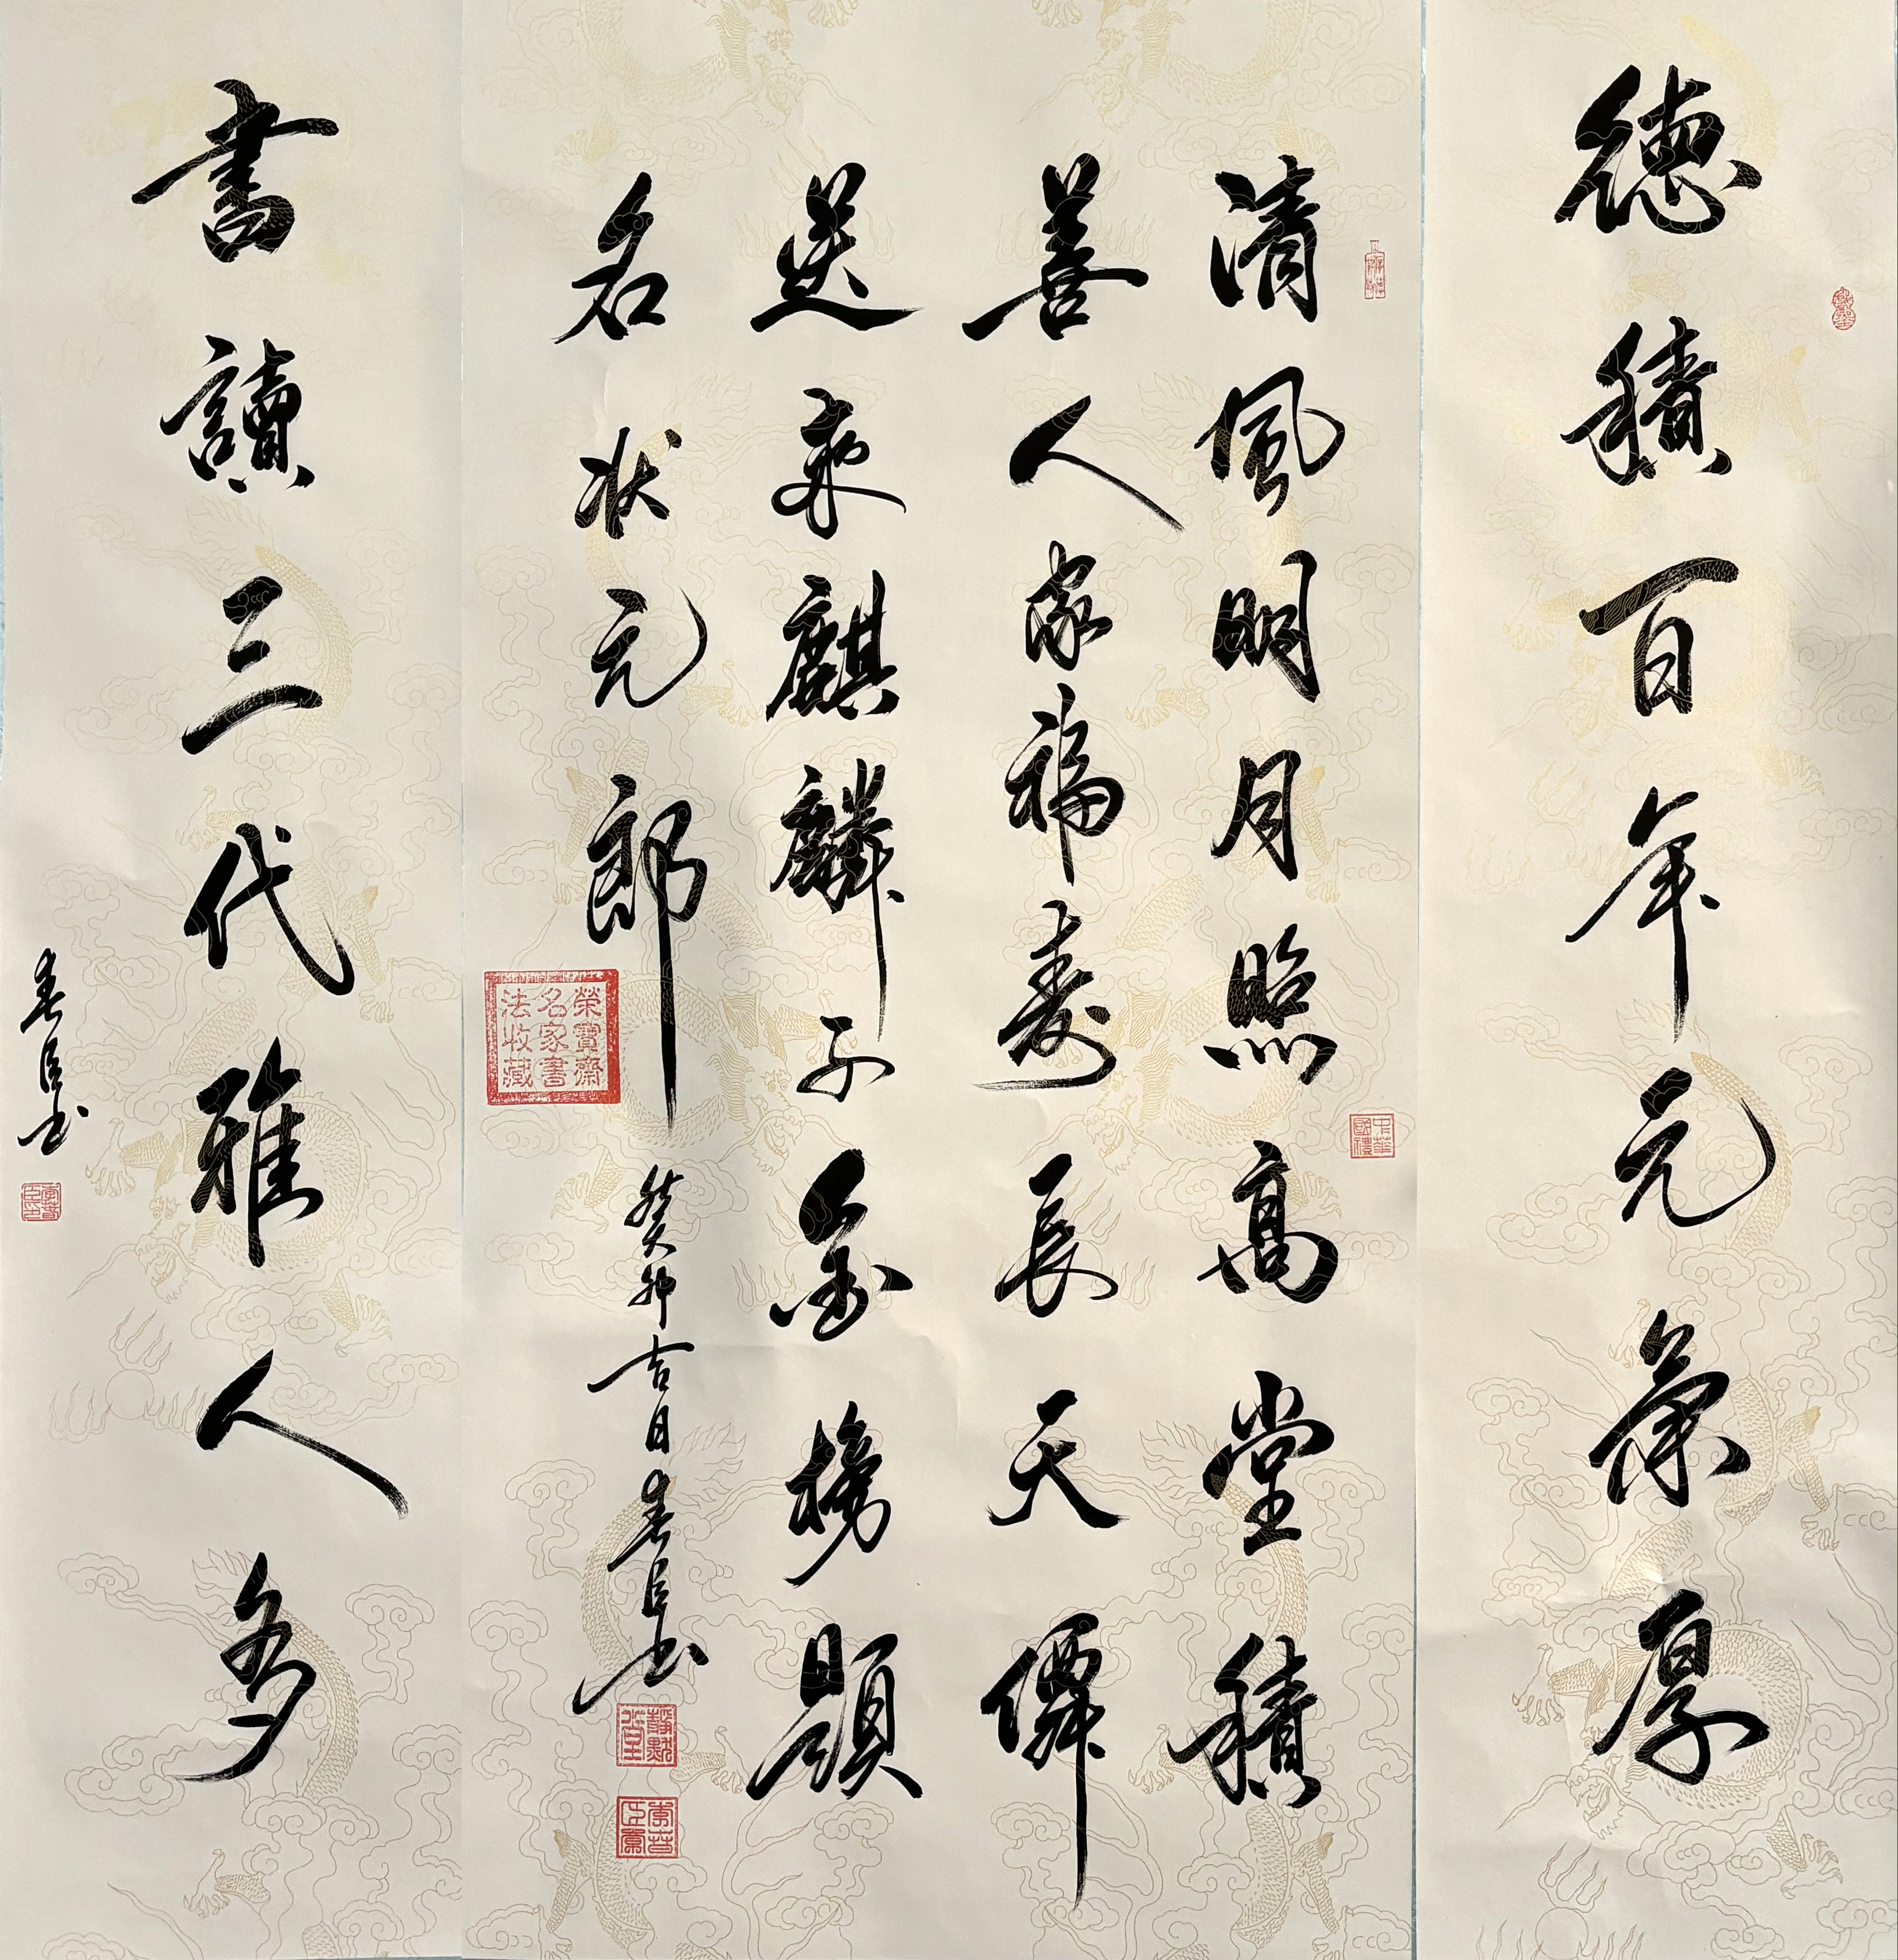 德積百年元氣厚
清風明月照高堂積
善人家福壽長天僊
送來麒麟子金榜題
名狀元郎
癸卯吉日春臣书
榮寶齋
名家書
法收藏
中華
國禮
書讀三代雅人多
春臣书